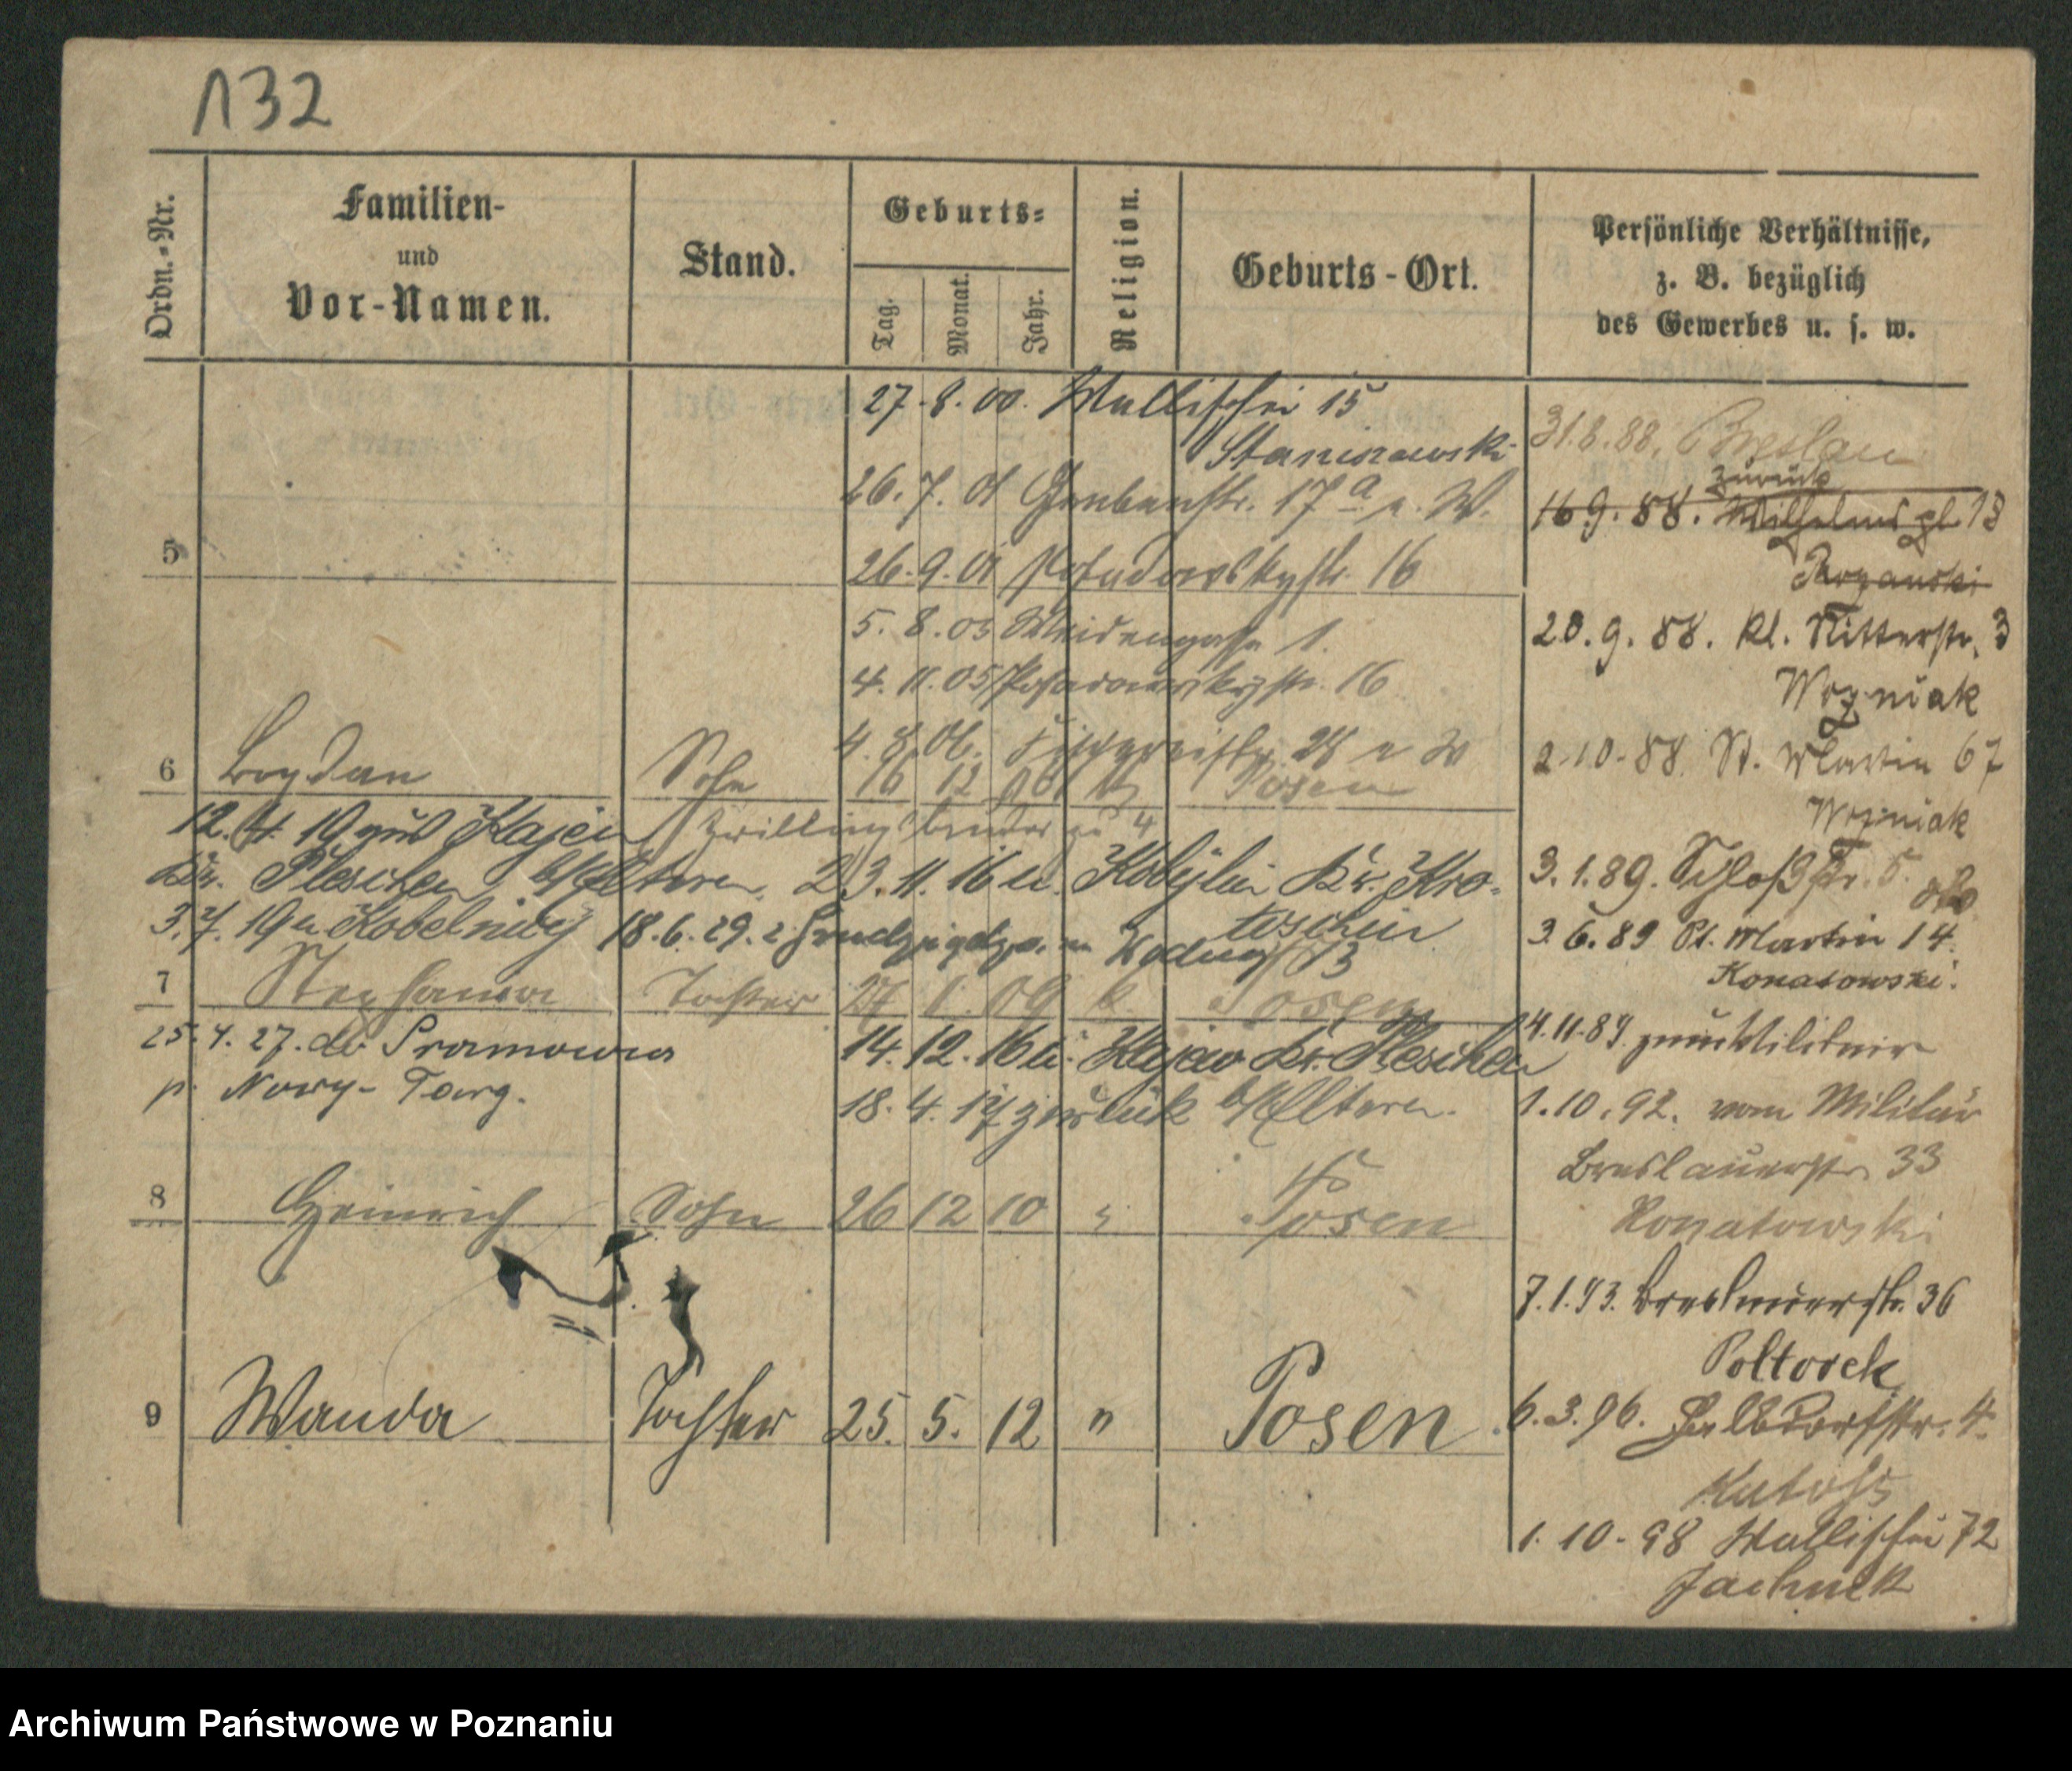 132
Ordn.-Nr.
Familien-
und
Vor-Namen.
Stand.
Geburts-
Tag.
Monat.
Jahr.
Religion.
Geburts-Ort.
Persönliche Verhältnisse,
z. B. bezüglich
des Gewerbes u. s. w.
27.8.00. Wallischei 15
Staniszewski
26.7.01 Grabenstr. 17a
5
26.9.01 Posadowskystr. 16
5.8.05 Weidengasse 1.
4.11.05 Posadowskystr. 16
4.8.06. 28
6 Bogdan Sohn 16 12 06 Posen
Zwillingsbruder zu 4
12.4.19 Kajew
Kr. Pleschen b/Eltern. 23.11.16 n. Kobylin Kr. Kro-
toschin
3.7.19 n Kobelnitz 18.6.29.
7 Stephania Tochter 27 1. 09 k. Posen
25.4.27. do Sromowca
p. Nowy-Targ.
14.12.16 n. Kajew Kr. Pleschen
18.4.17 zurück b/Eltern.
8 Heinrich Sohn 26 12 10 " Posen
9 Wanda Tochter 25. 5. 12 " Posen
31.8.88. Breslau
zurück
16.9.88. Wilhelmspl. 18
20.9.88. Kl. Ritterstr. 3
Wozniak
2.10.88. St. Martin 67
Wozniak
3.1.89. Schloßstr. 5.
3.6.89 St. Martin 14.
Konatowski.
4.11.89. zum Militair
1.10.92. vom Militär
Breslauerstr. 33
Konatowski
7.1.93. Breslauerstr. 36
Poltorek
6.3.96. Halbdorfstr. 4.
1.10.98 Wallischei 72
Jachnik
Archiwum Państwowe w Poznaniu